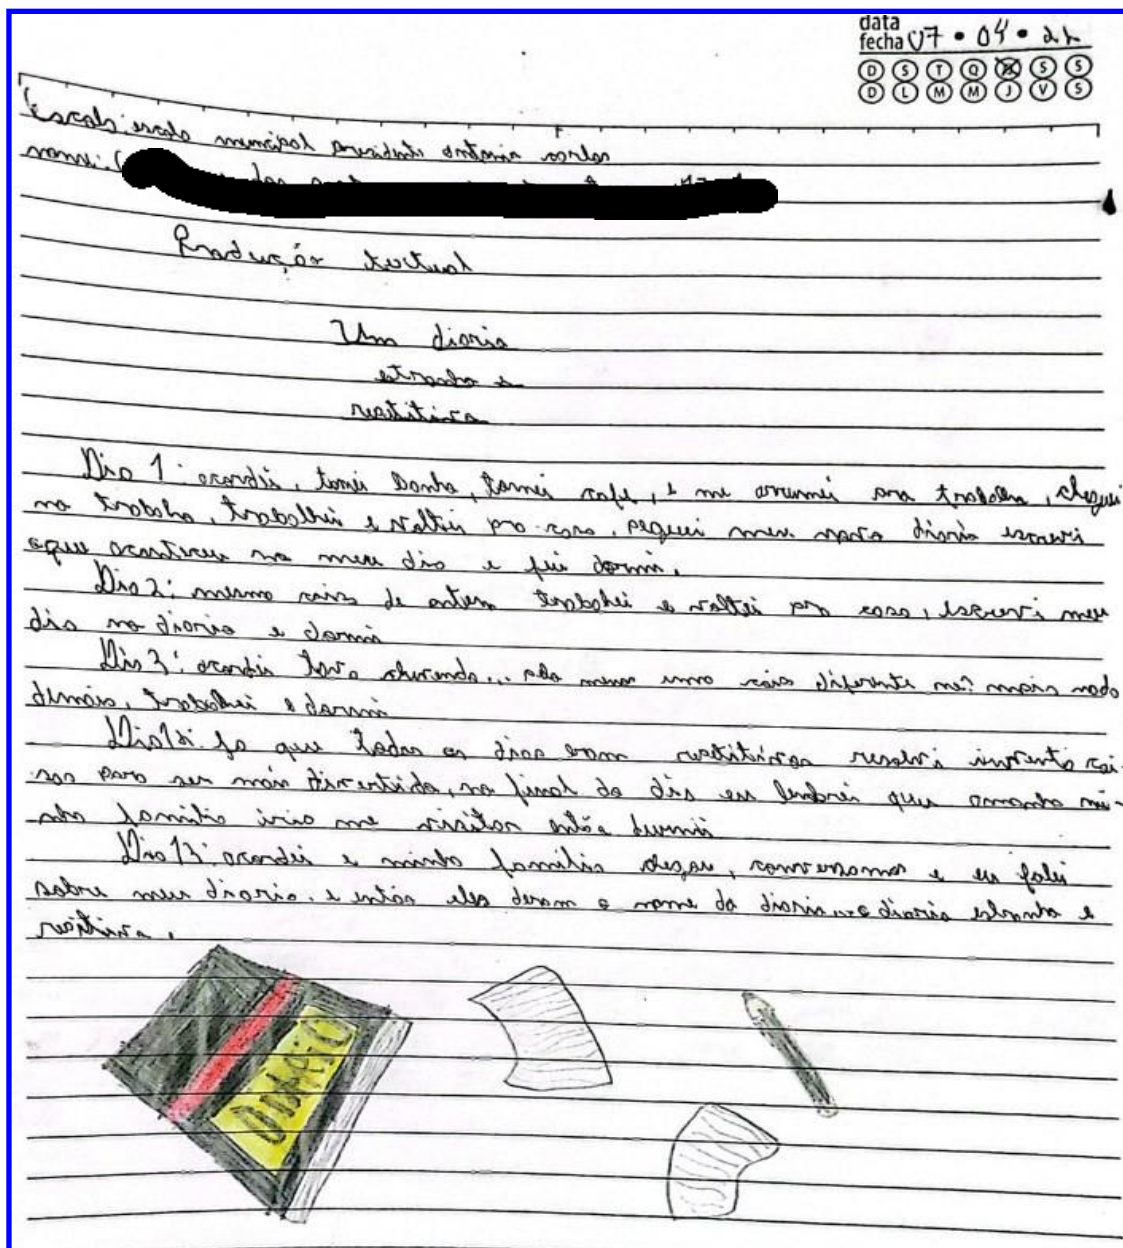 data
fecha 07 • 04 • 22
D S T Q Q S S
D L M M J V S
Escola: escola municipal
nome:
Produção textual
Um diario
etranho e
reetitivo
Dia 1: acordei, tomei banho, tomei cafe, e me arrumei pra trabalha, cheguei
no trabaho, trabalhei e voltei pra casa, peguei meu novo diario escrevi
oque aconteceu no meu dia e fui dormi.
Dia 2: mesma coisa de ontem trabahei e voltei pra casa, escrevi meu
dia no diario e dormi
Dia 3: acordei tava chovendo... uma coisa diferente né? mais nada
demais, trabahei e dormi
ja que todos os dias eram reetitivos resolvi inventa coi-
sas para ser mais divertido, no final do dia eu lembrei que amanha mi-
nha familia viria me visitar então durmi
Dia 13: acordei e minha familia chegou, conversamos e eu falei
sobre meu diario. e então eles deram o nome do diario... o diario etranho e
reetitivo.
DIARIO